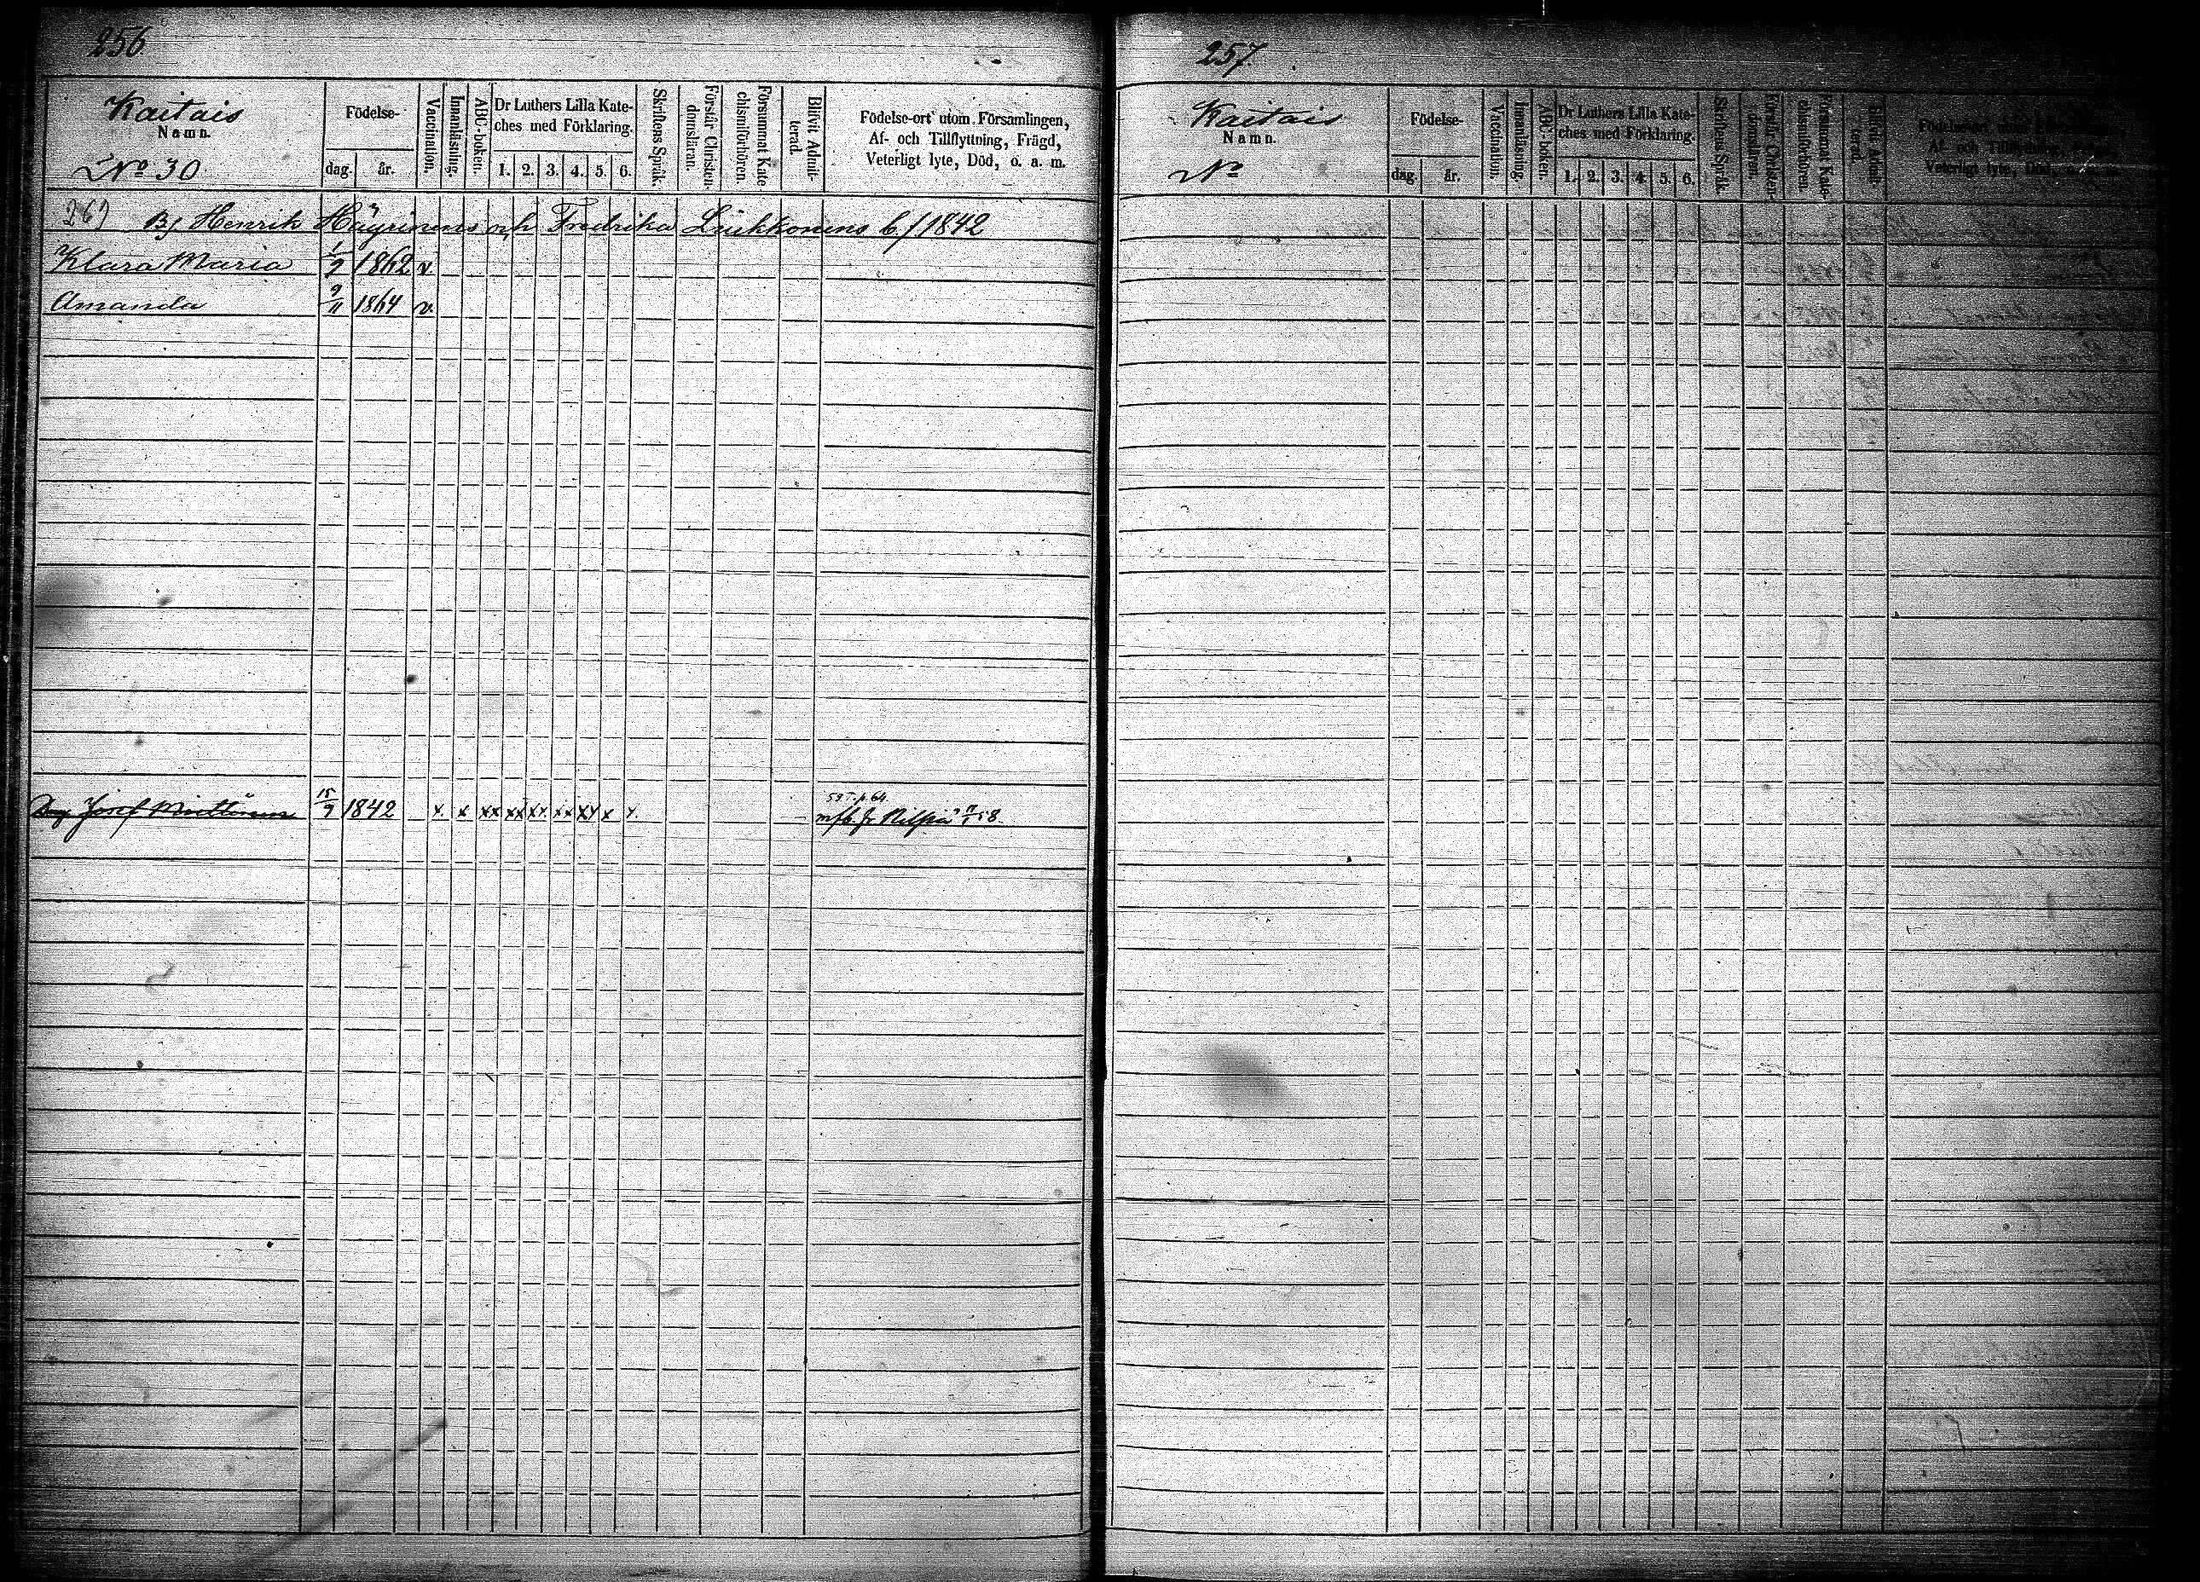 256
Kaitais
Namn.
No 30
Födelse-
dag. år.
Vaccination.
Innanläsning.
ABC-boken.
Dr Luthers Lilla Kate-
ches med Förklaring.
1. 2. 3. 4. 5. 6.
Skriftens Språk.
Förstår Christen-
domsläran.
Försummat Kate
chismiförhören.
Blifvit Admit-
terad.
Födelse-ort utom Församlingen,
Af- och Tillflyttning, Frägd,
Veterligt lyte, Död, o. a. m.
267 Bj Henrik Häyrinens och Fredrika Liukkonens b. f 1842
Klara Maria 1/9 1862 v.
Amanda 9/11 1864 v.
Josef 15/9 1842 x. x xx xx xx xx xx x x.
mfb. fr Nilsiä
257.
Kaitais
Namn.
No
Födelse-
dag. år.
Vaccination.
Innanläsning.
ABC-boken.
Dr Luthers Lilla Kate-
ches med Förklaring.
1. 2. 3. 4. 5. 6.
Skriftens Språk.
Förstår Christen-
domsläran.
Försummat Kate-
chismiförhören.
Blifvit Admit-
terad.
Födelse-ort utom Församlingen,
Af- och Tillflyttning, Frägd,
Veterligt lyte, Död, o. a. m.